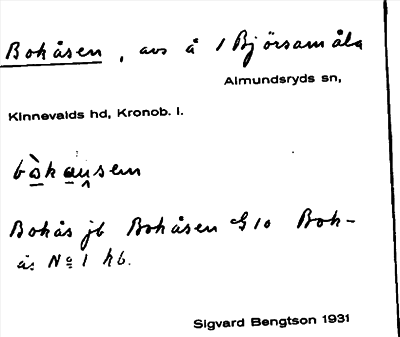 Bokåsen, avs å 1 Björsamåla
Almundsryds sn,
Kinnevalds hd, Kronob. l.
bòkåusen
Bokås jb Bokåsen G 10 Bok-
ås No 1 hb.
Sigvard Bengtson 1931